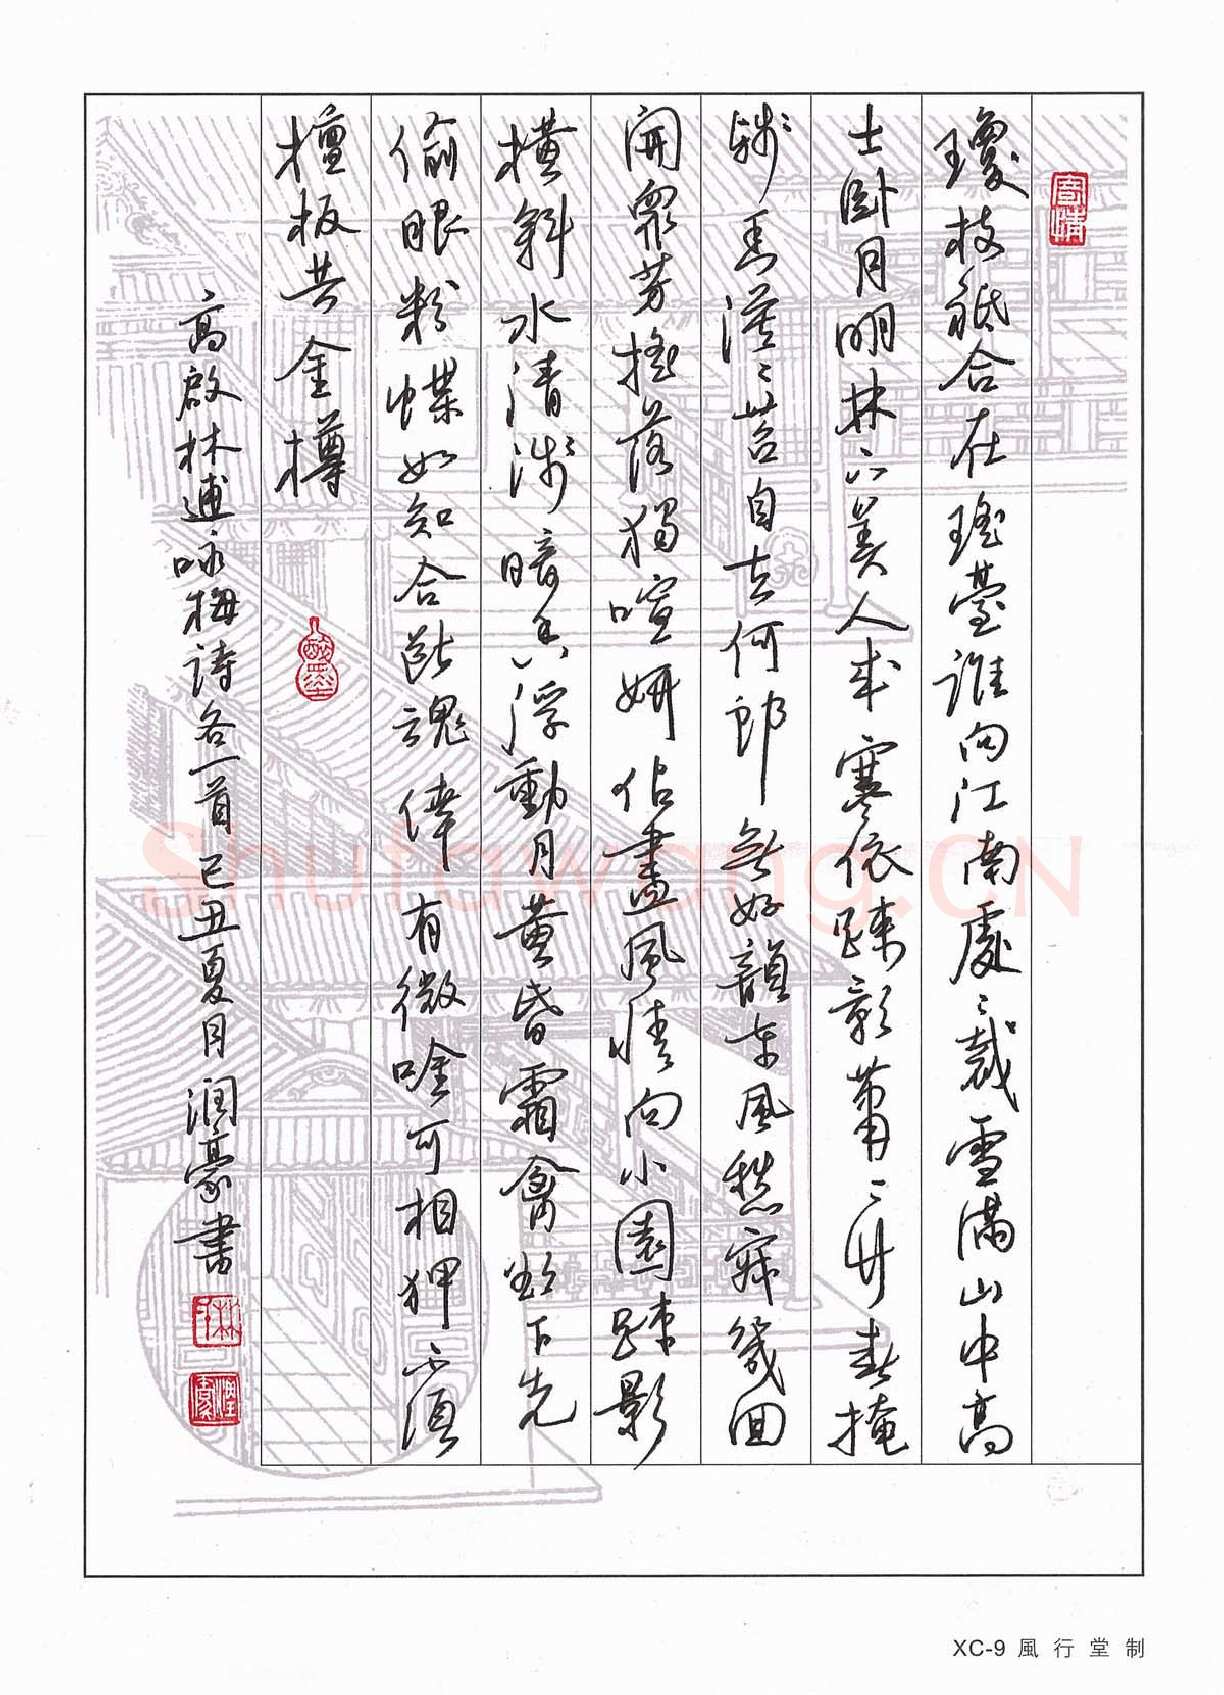 寄情
瓊枝祗合在瑤臺誰向江南處〻栽雪滿山中高
士卧月明林下美人来寒依疎影蕭〻竹春掩
殘香漠〻苔自去何郎無好韻東風愁寂幾回
開眾芳搖落獨喧妍佔盡風情向小園疎影
橫斜水清淺暗香浮動月黃昏霜禽欲下先
偷眼粉蝶如知合斷魂倖有微吟可相狎不須
檀板共金樽
醉墨
高啟林逋咏梅詩各一首己丑夏月润豪書
潤豪
Shufawang.CN
XC-9 風行堂制